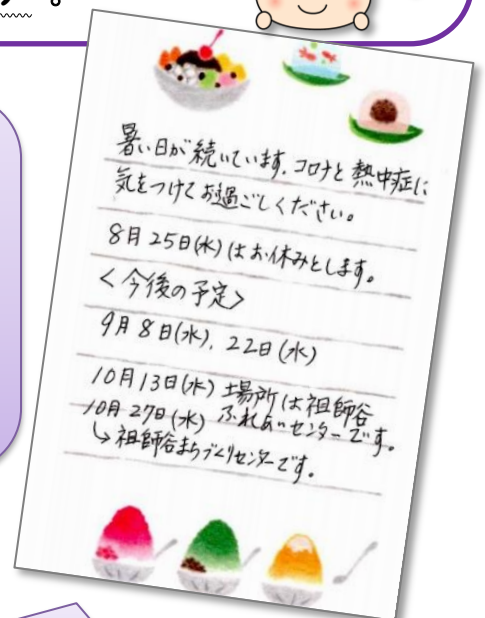 暑い日が続いています。コロナと熱中症に
気をつけてお過ごしください。
8月25日(水)はお休みとします。
<今後の予定>
9月8日(水)、22日(水)
10月13日(水) 場所は祖師谷
10月27日(水) ふれあいセンターです。
↳祖師谷まちづくりセンターです。